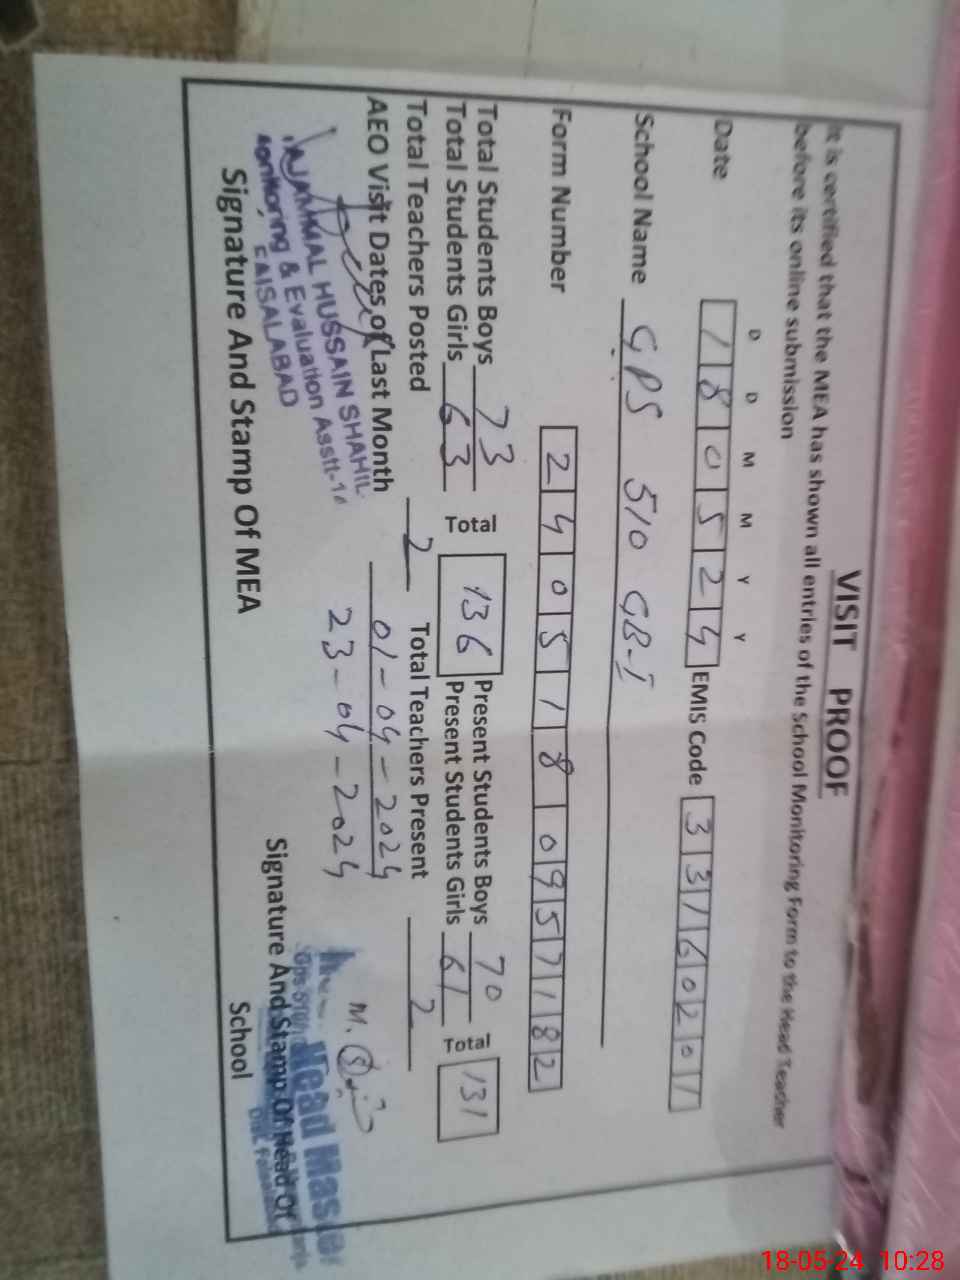 VISIT PROOF
It is certified that the MEA has shown all entries of the School Monitoring Form to the Head Teacher
before its online submission
D D M M Y Y
Date 180524 EMIS Code 33160201
School Name GPS 510 GB-I
Form Number 2405180957182
Total Students Boys 73 Total 136 Present Students Boys 70 Total 131
Total Students Girls 63 Present Students Girls 61
Total Teachers Posted 2 Total Teachers Present 2
AEO Visit Dates of Last Month 01-04-2024
23-04-2024
HUSSAIN SHAHI
Monitoring & Evaluation Asstt-
FAISALABAD
Signature And Stamp Of MEA
Head Master
Signature And Stamp Of Head Of
School
18-05-24 10:28